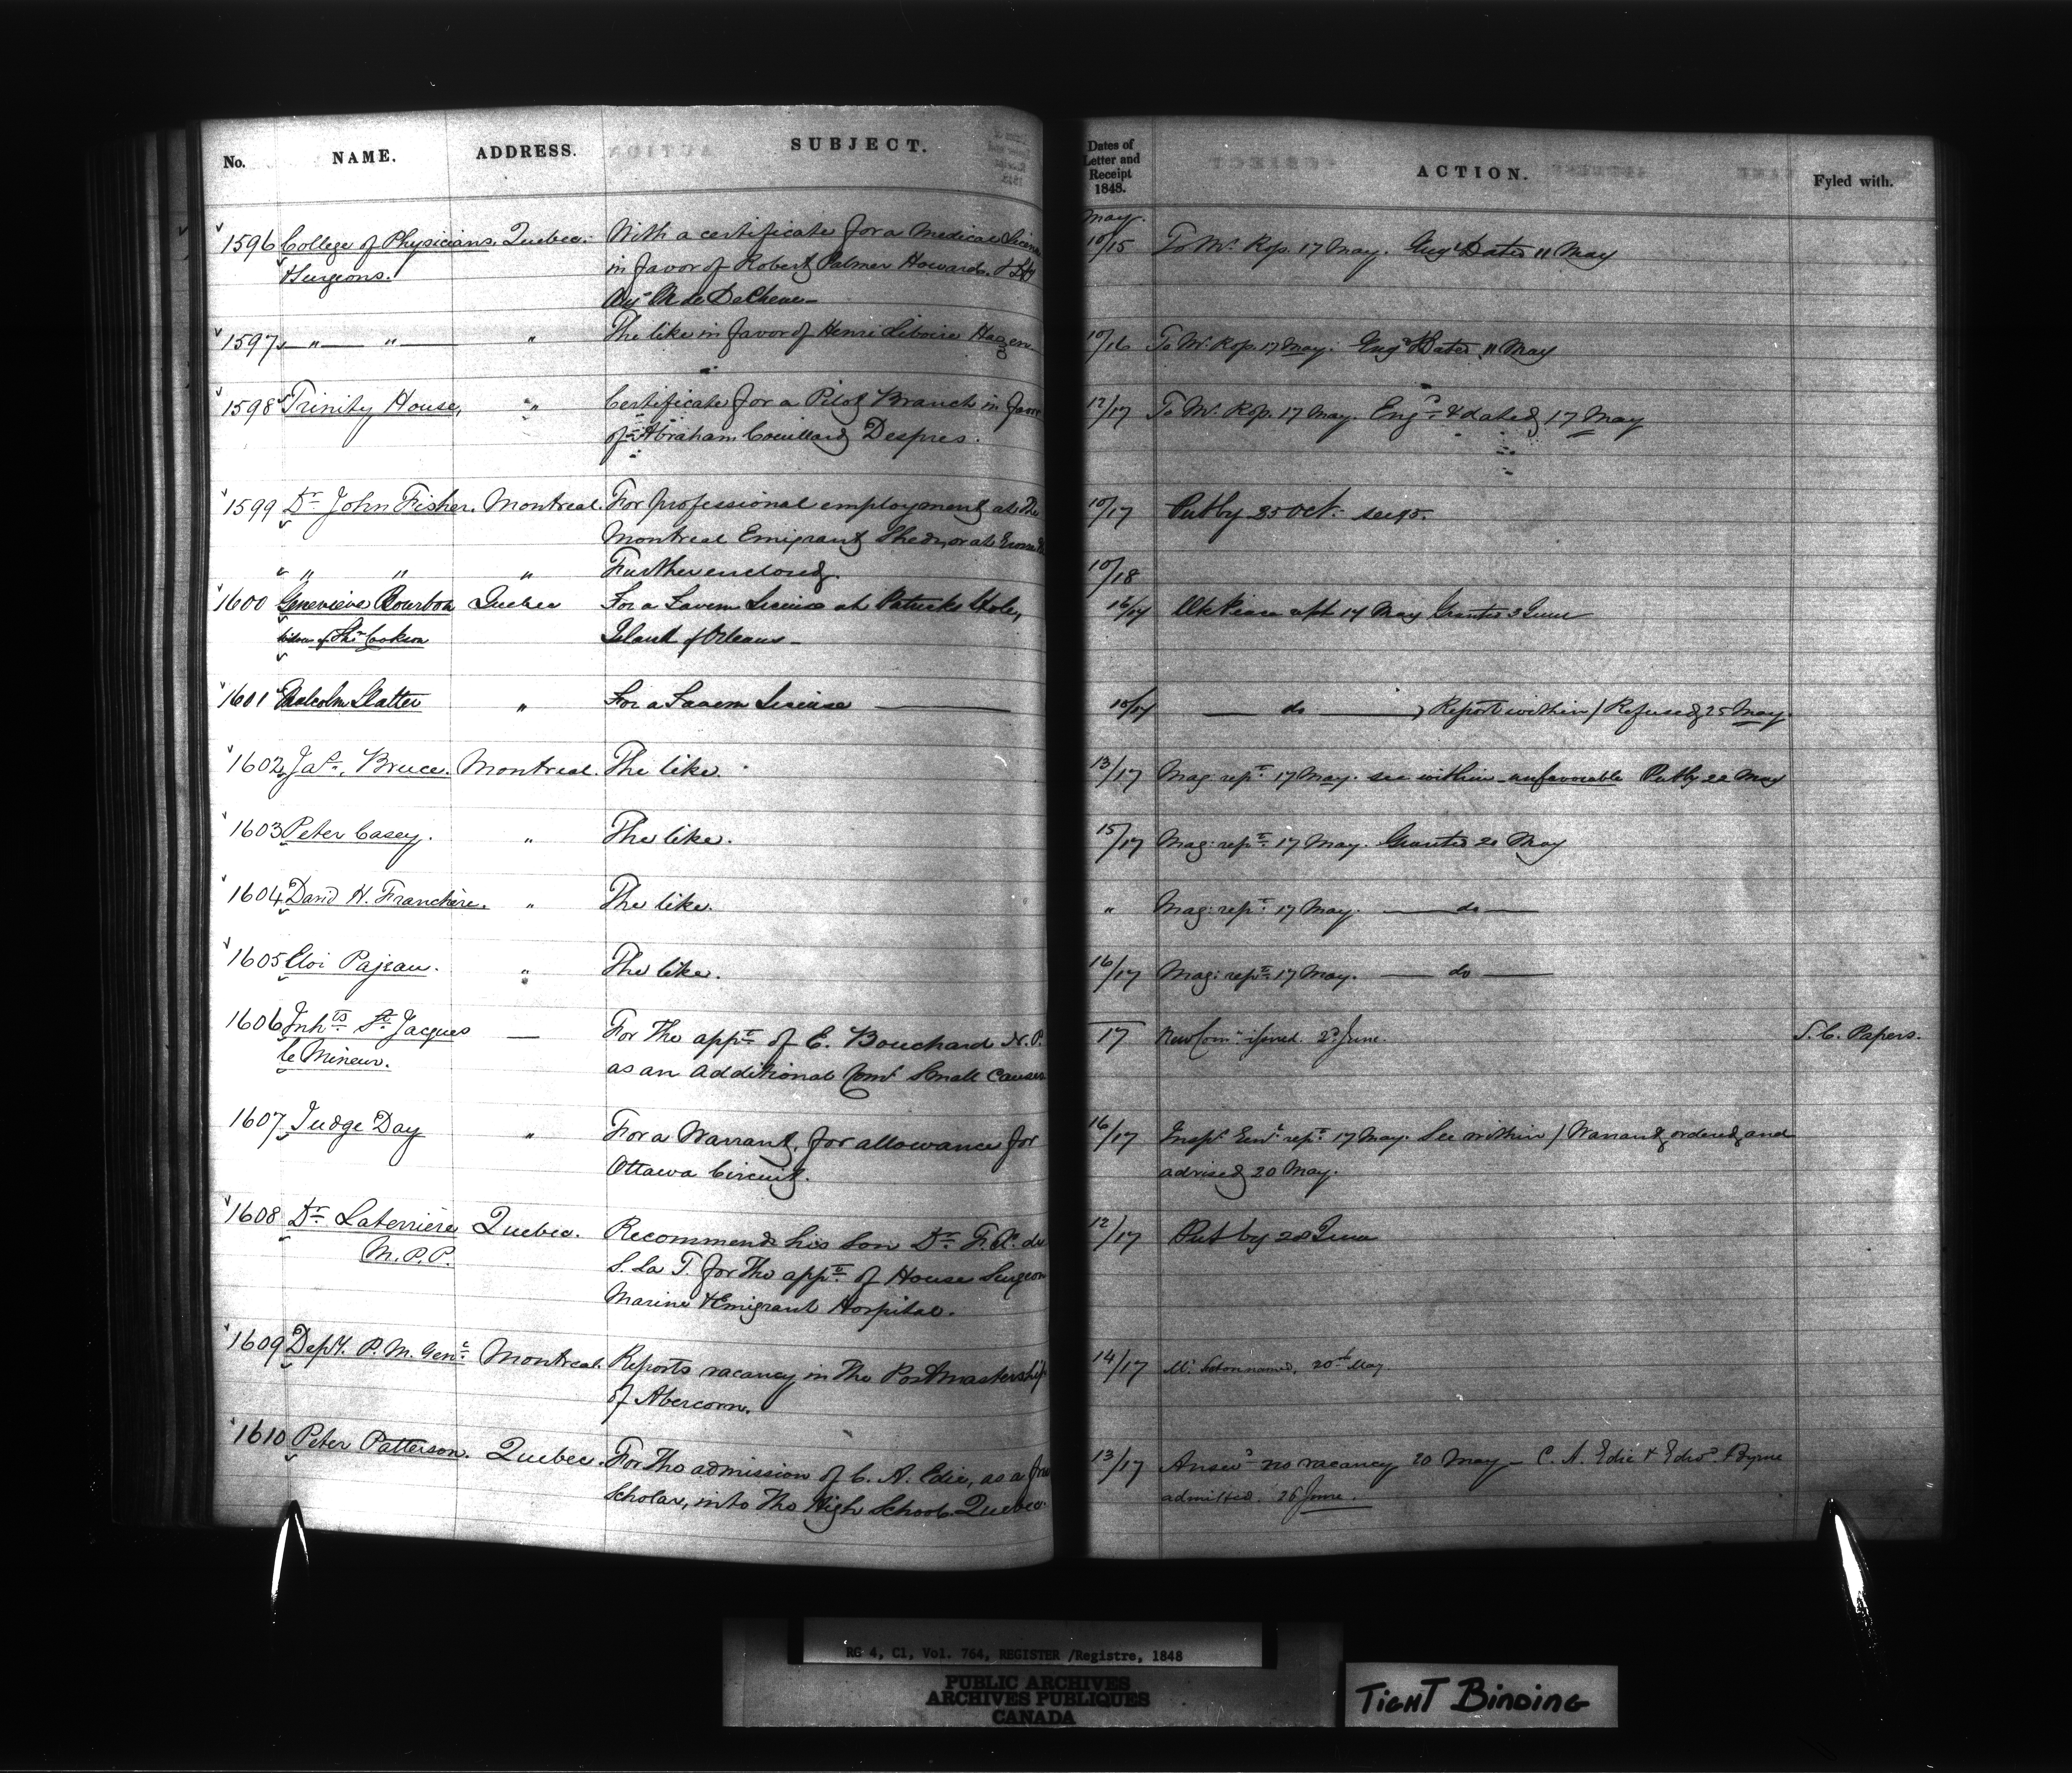 No. NAME. ADDRESS. SUBJECT.
Dates of Letter and Receipt 1848. ACTION. Fyled with.
May.
1596 College of Physicians Quebec. With a certificate for a Medical 10/15 To Mr. Rop. 17 May. Dated 11 May
& Surgeons. in favor of Robert Palmer Howard,
DeChene
1597 " " " The like in favor of Henri Liboire Hagen 10/16 To Mr. Rop. 17 May. Dated 11 May
1598 Trinity House, " Certificate for a Pilot Branch in favor 12/17 To Mr. Rop. 17 May. Eng.d & dated 17 May
of Abraham Couillard Despres.
1599 Dr. John Fisher. Montreal. For professional employment at the 10/17 Put by 25 Oct.
Montreal Emigrant Sheds, or at
" " " Further enclosed. 10/18
1600 Genevieve Bourbon Quebec For a Tavern License at Patricks Hole, 17 May Granted 3 June
Cookson Island of Orleans
1601 Malcolm Slatter " For a Tavern License do Report within / Refused 25 May.
1602 Jas. Bruce. Montreal. The like. 13/17 Mag: rept. 17 May. see within unfavorable Put by 22 May
1603 Peter Casey. " The like. 15/17 Mag: rept. 17 May. Granted 20 May
1604 David H. Franchère. " The like. " Mag: rept. 17 May. do
1605 Eloi Pajeau. " The like. 16/17 Mag: rept. 17 May. do
1606 Inhts. St. Jacques — For the appt. of E. Bouchard N. P. 17 New Comn. issued 2d June. S. C. Papers.
le Mineur. as an additional Comr. Small Causes
1607 Judge Day " For a Warrant, for allowance for 16/17 Inspr. Genl. rept. 17 May. See within / Warrant ordered and
Ottawa Circuit. advised 20 May.
1608 Dr. Laterrière Quebec. Recommends his Son Dr. F. 12/17 Put by 28 June
M.P.P. S. La T. for the appt. of House Surgeon
Marine & Emigrant Hospital.
1609 Depy. P. M. Genl. Montreal. Reports vacancy in the Postmastership 14/17 Mr. named, 20th May
of Abercorn.
1610 Peter Patterson. Quebec. For the admission of C. A. Edie, as a free 13/17 Answd. no vacancy 20 May — C. A. Edie & Edwd. Byrne
Scholar, into the High School Quebec. admitted. 26 June.
RG 4, C1, Vol. 764, REGISTER /Registre, 1848
PUBLIC ARCHIVES
ARCHIVES PUBLIQUES
CANADA
TIGHT BINDING